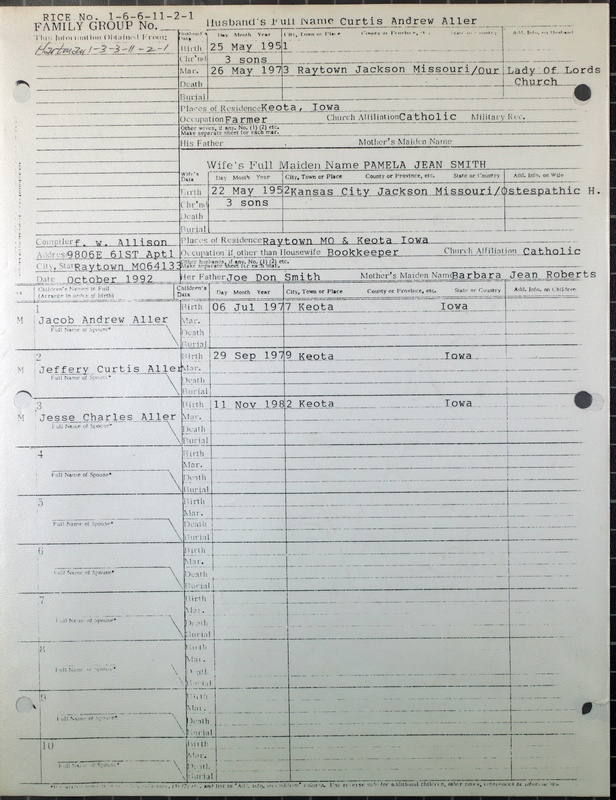 RICE No. 1-6-6-11-2-1
FAMILY GROUP No.
This Information Obtained From:
Hartman 1-3-3-11-2-1
Husband's Full Name Curtis Andrew Aller
Husband's Data Day Month Year City, Town or Place County or Province, etc. State or Country Add. Info. on Husband
Birth 25 May 1951
Chr'nd 3 sons
Mar. 26 May 1973 Raytown Jackson Missouri/Our Lady Of Lords Church
Death
Burial
Places of Residence Keota, Iowa
Occupation Farmer Church Affiliation Catholic Military Rec.
Other wives, if any. No. (1) (2) etc.
Make separate sheet for each mar.
His Father Mother's Maiden Name
Wife's Full Maiden Name PAMELA JEAN SMITH
Wife's Data Day Month Year City, Town or Place County or Province, etc. State or Country Add. Info. on Wife
Birth 22 May 1952 Kansas City Jackson Missouri/Ostespathic H.
Chr'nd 3 sons
Death
Burial
Compiler f. w. Allison
Address 9806E 61ST Apt1
City, State Raytown MO64133
Date October 1992
Places of Residence Raytown MO & Keota Iowa
Occupation if other than Housewife Bookkeeper Church Affiliation Catholic
Other husbands, if any. No. (1) (2) etc.
Make separate sheet for each mar.
Her Father Joe Don Smith Mother's Maiden Name Barbara Jean Roberts
Children's Names in Full
(Arrange in order of birth)
Children's Data Day Month Year City, Town or Place County or Province, etc. State or Country Add. Info. on Children
1 Birth 06 Jul 1977 Keota Iowa
M Jacob Andrew Aller Mar.
Full Name of Spouse* Death
Burial
2 Birth 29 Sep 1979 Keota Iowa
M Jeffery Curtis Aller Mar.
Full Name of Spouse* Death
Burial
3 Birth 11 Nov 1982 Keota Iowa
M Jesse Charles Aller Mar.
Full Name of Spouse* Death
Burial
4 Birth
Mar.
Full Name of Spouse* Death
Burial
5 Birth
Mar.
Full Name of Spouse* Death
Burial
6 Birth
Mar.
Full Name of Spouse* Death
Burial
7 Birth
Mar.
Full Name of Spouse* Death
Burial
8 Birth
Mar.
Full Name of Spouse* Death
Burial
9 Birth
Mar.
Full Name of Spouse* Death
Burial
10 Birth
Mar.
Full Name of Spouse* Death
Burial